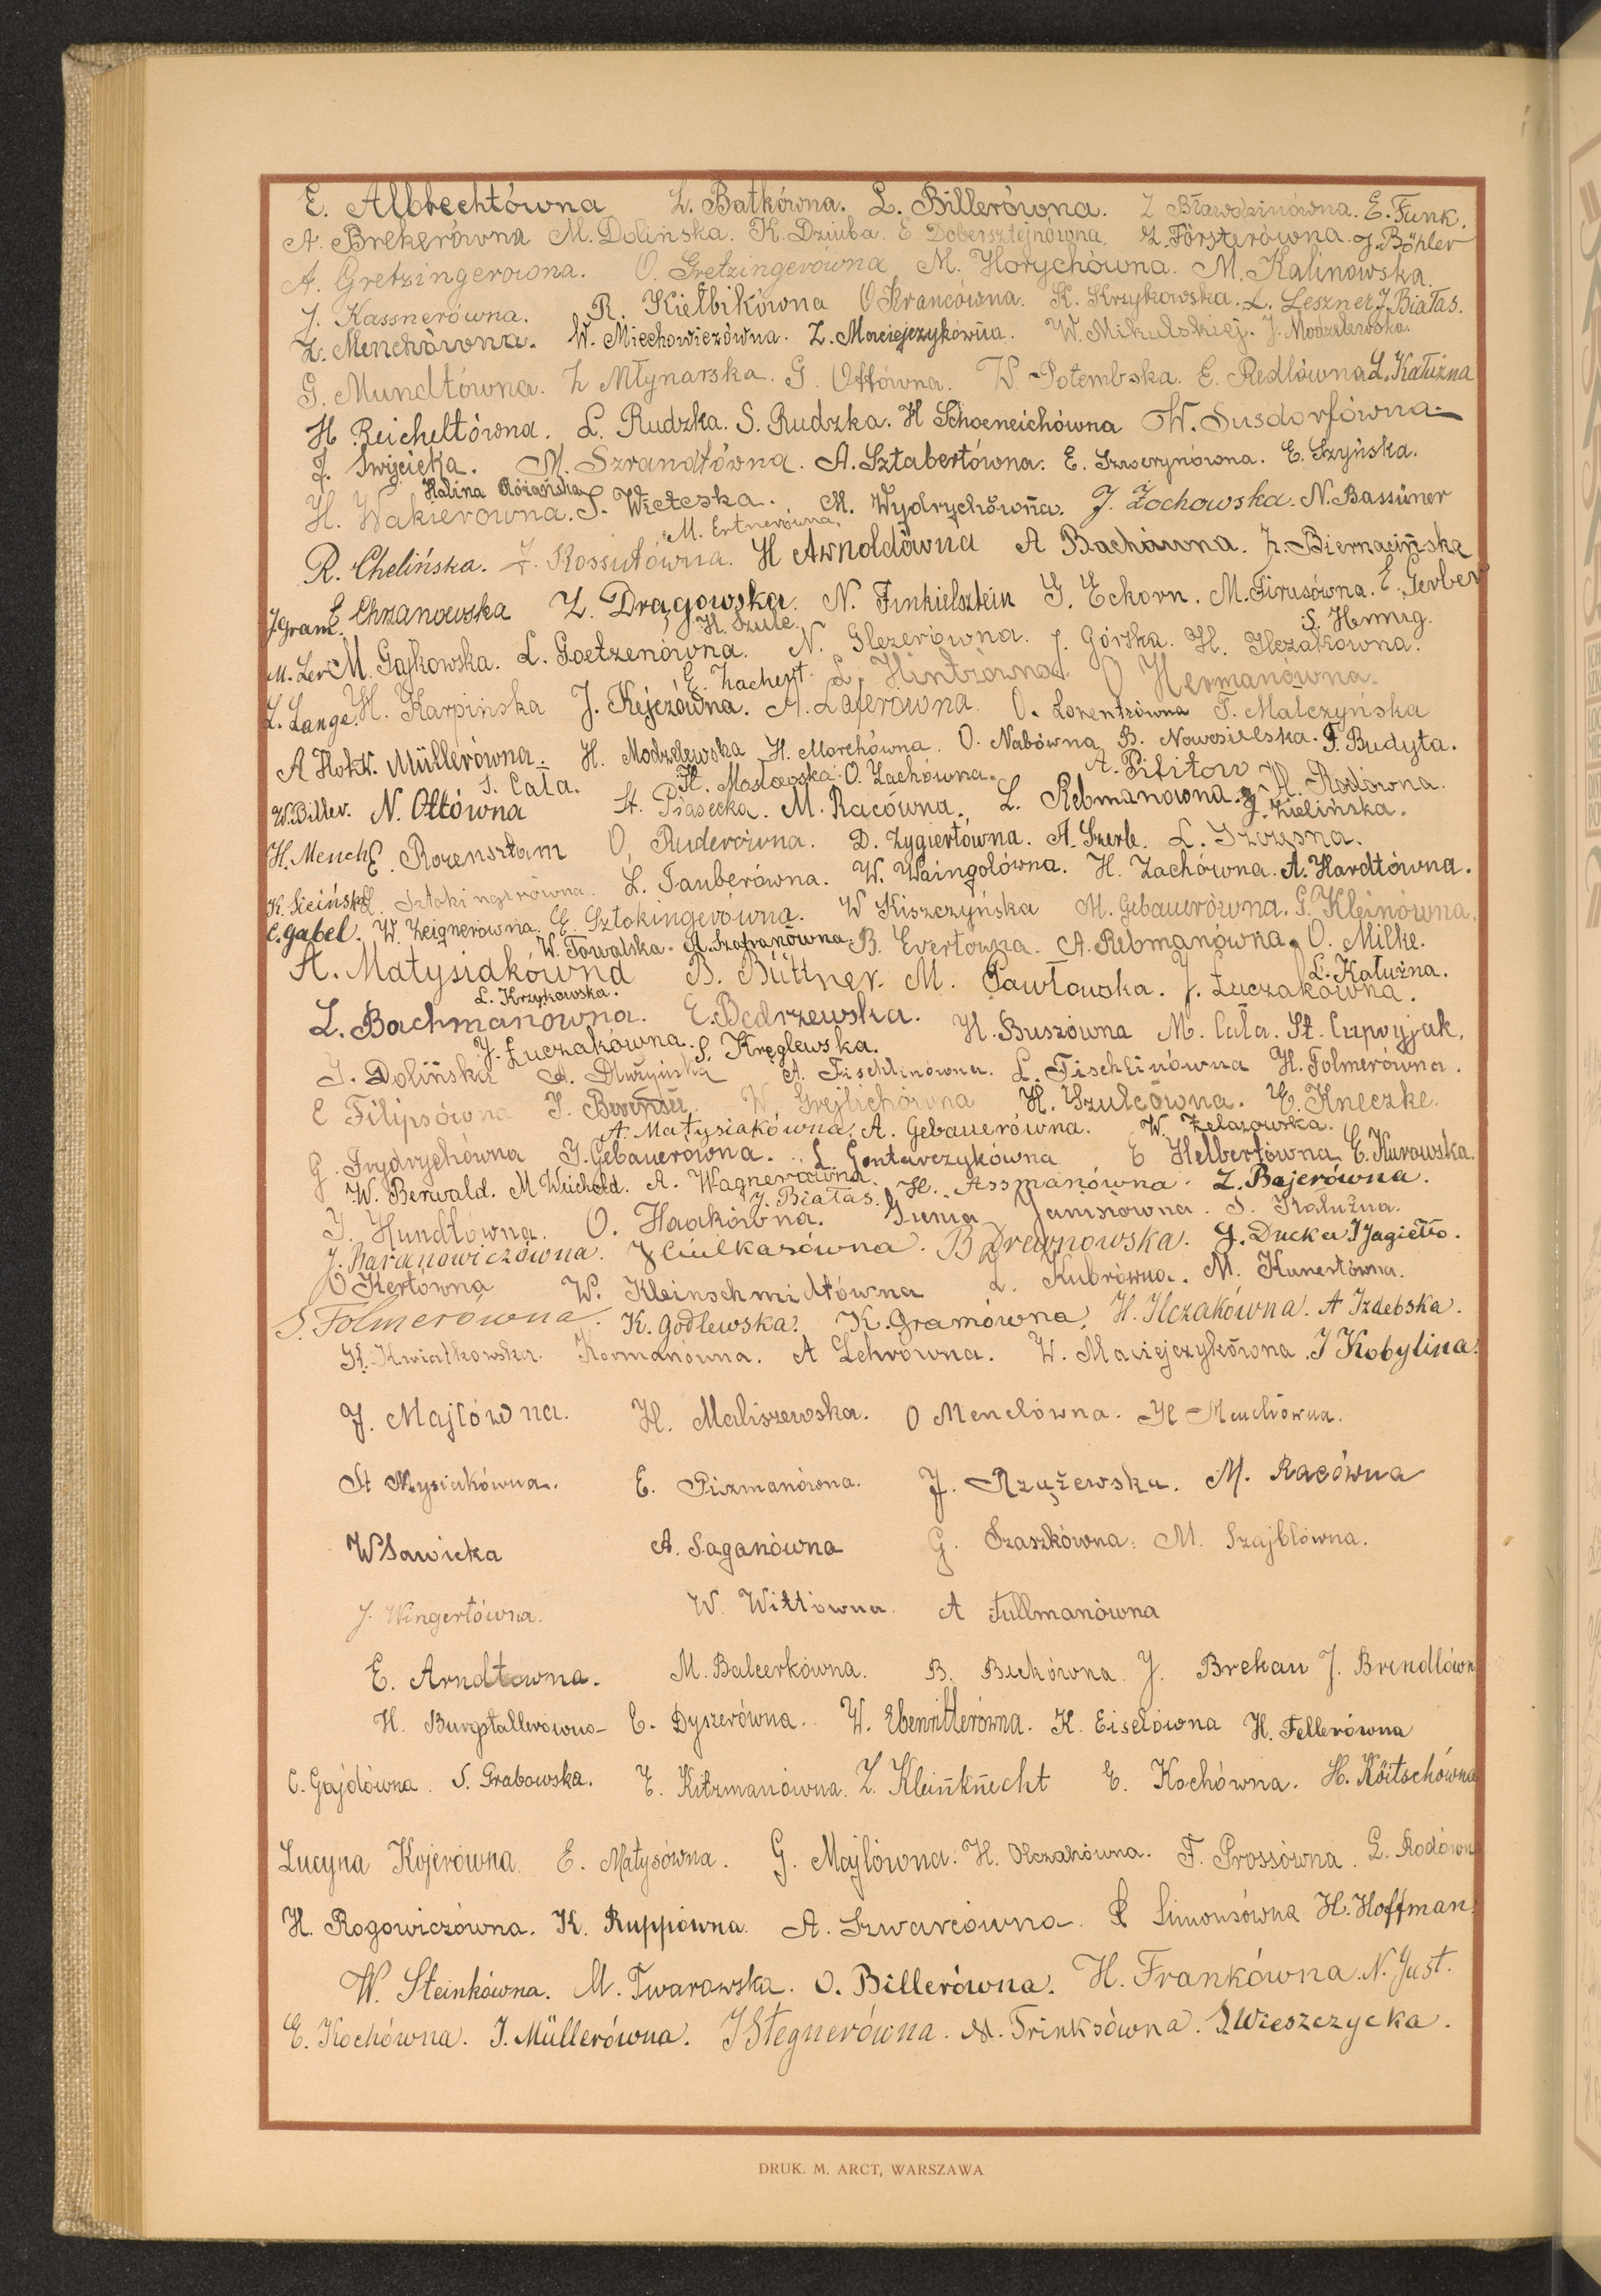 E. Albrechtówna Z. Bałkówna. L. Billerówna. Z Bławdzinówna. E. Funk.
A. Brekerówna M. Dolińska. K. Dziuba. E Dobersztejnówna. Z. Försterówna. J. Böhler
A. Gretzingerówna. O. Gretzingerówna M. Horychówna. M. Kalinowska.
J. Kassnerówna. R. Kiełbikówna O Krancówna. K. Krzykowska. L. Leszner J. Białas.
Z. Menchówna. W. Miechowiczówna. Z. Maciejczykówna. W. Mikulskiej. J. Modzelewska.
G. Mundtówna. Z Młynarska. G. Ottówna. W. Potembska. E. Redlówna L. Kałużna
H Reicheltówna. L. Rudzka. S. Rudzka. H Schoeneichówna W. Susdorfówna
J. Święcicka. M. Szrandtówna. A. Sztabertówna. E. E. Szyńska.
Halina Różańska
H. Wakierówna. S. Wieteska. M. Wydrychówna. J. Żochowska. N. Bassüner
M. Ertnerówna.
R. Chelińska. J. Kossutówna. H Arnoldówna A Bachówna. Z. Biernacińska
J. Gram. E Chrzanowska Z. Dragowska. N. Finkielsztein G. Eckorn. M. Firusówna. E. Gerber
H. Szulc. S. Hennig.
M. Ler M. Gajkowska. L. Goetzenówna. N. Glezerówna. J. Górska. H. Ilczakówna.
E. Zachert. L. Hintzówna. O Hermanówna.
Z. Lange. H. Karpińska J. Kejczówna. A. Laferówna. O. Lorentzówna F. Malczyńska
A Hok W. Müllerówna. H. Modzelewska H. Morchówna. O. Nabówna B. Nowosielska. F. Budyta.
S. Cała. H. Masłowska O. Zachówna. A. Pifitow
W. Biller. N. Ottówna St. Piasecka. M. Racówna. L. Rebmanówna. H. Rodówna.
J. Zielińska.
H. Mench E. Rozensztam O. Ruderówna. D. Zygiertówna. A. Szerle. L. Szczęsna.
K. Siciński Sztokingerówna. L. Tauberówna. W. Waingolówna. H. Zachówna. A. Hardtówna.
C. Gabel. W. Zeignerówna. E. Sztokingerówna. W Kiszczyńska M. Gebauerówna. G. Kleinówna.
W. Towalska. A. Szafranówna. B. Evertówna. A. Rebmanówna. O. Milke.
A. Matysiakówna B. Büttner. M. Pawłowska. J. Łuczakówna.
L. Krzykowska. L. Kałużna.
L. Bachmanówna. E. Bedrzewska. H. Buszówna M. Cała. St. Cupryjak.
J. Łuczakówna. S. Kręglewska.
J. Dolińska A. Dłużyńska A. Fischlinówna. L. Fischlinówna H. Folmerówna.
E Filipsówna J. W. Grejlichówna H. Szulcówna. E. Kneczke.
A. Matysiakówna. A. Gebauerówna. W. Żelazowska.
G. Frydrychówna J. Gebauerówna. L. Gontarczykówna E Helbertówna. E. Kurowska.
W. Berwald. M Weichold. A. Wagnerówna. H. Assmanówna. Z. Bajerówna.
J. Białas.
J. Hundtówna. O. Haakówna. Janisiówna. S. Kałużna.
J. Baranowiczówna. J Ciulkasówna. B Drewnowska. G. Ducka I Jagiełło.
O Kertówna W. Kleinschmidtówna L. Kubrówna. M. Kunertówna.
S. Folmerówna. K. Godlewska. K. Gramówna. H. Ilczakówna. A Izdebska.
H. Kwiatkowska. Kormanówna. A Lehrówna. W. Maciejczykówna. J Kobylina.
J. Majlówna. H. Maliszewska. O Menclówna. H Menchówna.
St Mysiakówna. E. Pizmanówna. J. Rzążewska. M. Racówna
W Sawicka A. Saganówna G. Szaszkówna. M. Szajblówna.
J. Wingertówna. W. Wittówna. A Tullmanówna
E. Arndtówna. M. Balcerkówna. B. Buchówna. J. Brekau J. Brendlówn
H. Burgstallerówna E. Dyszerówna. W. Ebenritterówna. K. Eiselówna H. Fellerówna
C. Gajdówna. S. Grabowska. E. Kitzmanówna. Z. Kleinknecht E. Kochówna. H. Köitschówna
Lucyna Kojerówna. E. Matysówna. G. Majlówna. H. Olczakówna. F. Prossówna. L. Rodówn
H. Rogowiczówna. K. Ruppówna. A. Szwarcówna. E Simonsówna H. Hoffman.
W. Steinkówna. M. Twarowska. O. Billerówna. H. Frankówna. N. Just.
E. Kochówna. J. Müllerówna. J Stegnerówna. M. Trinksówna. J Wieszczycka.
DRUK. M. ARCT, WARSZAWA